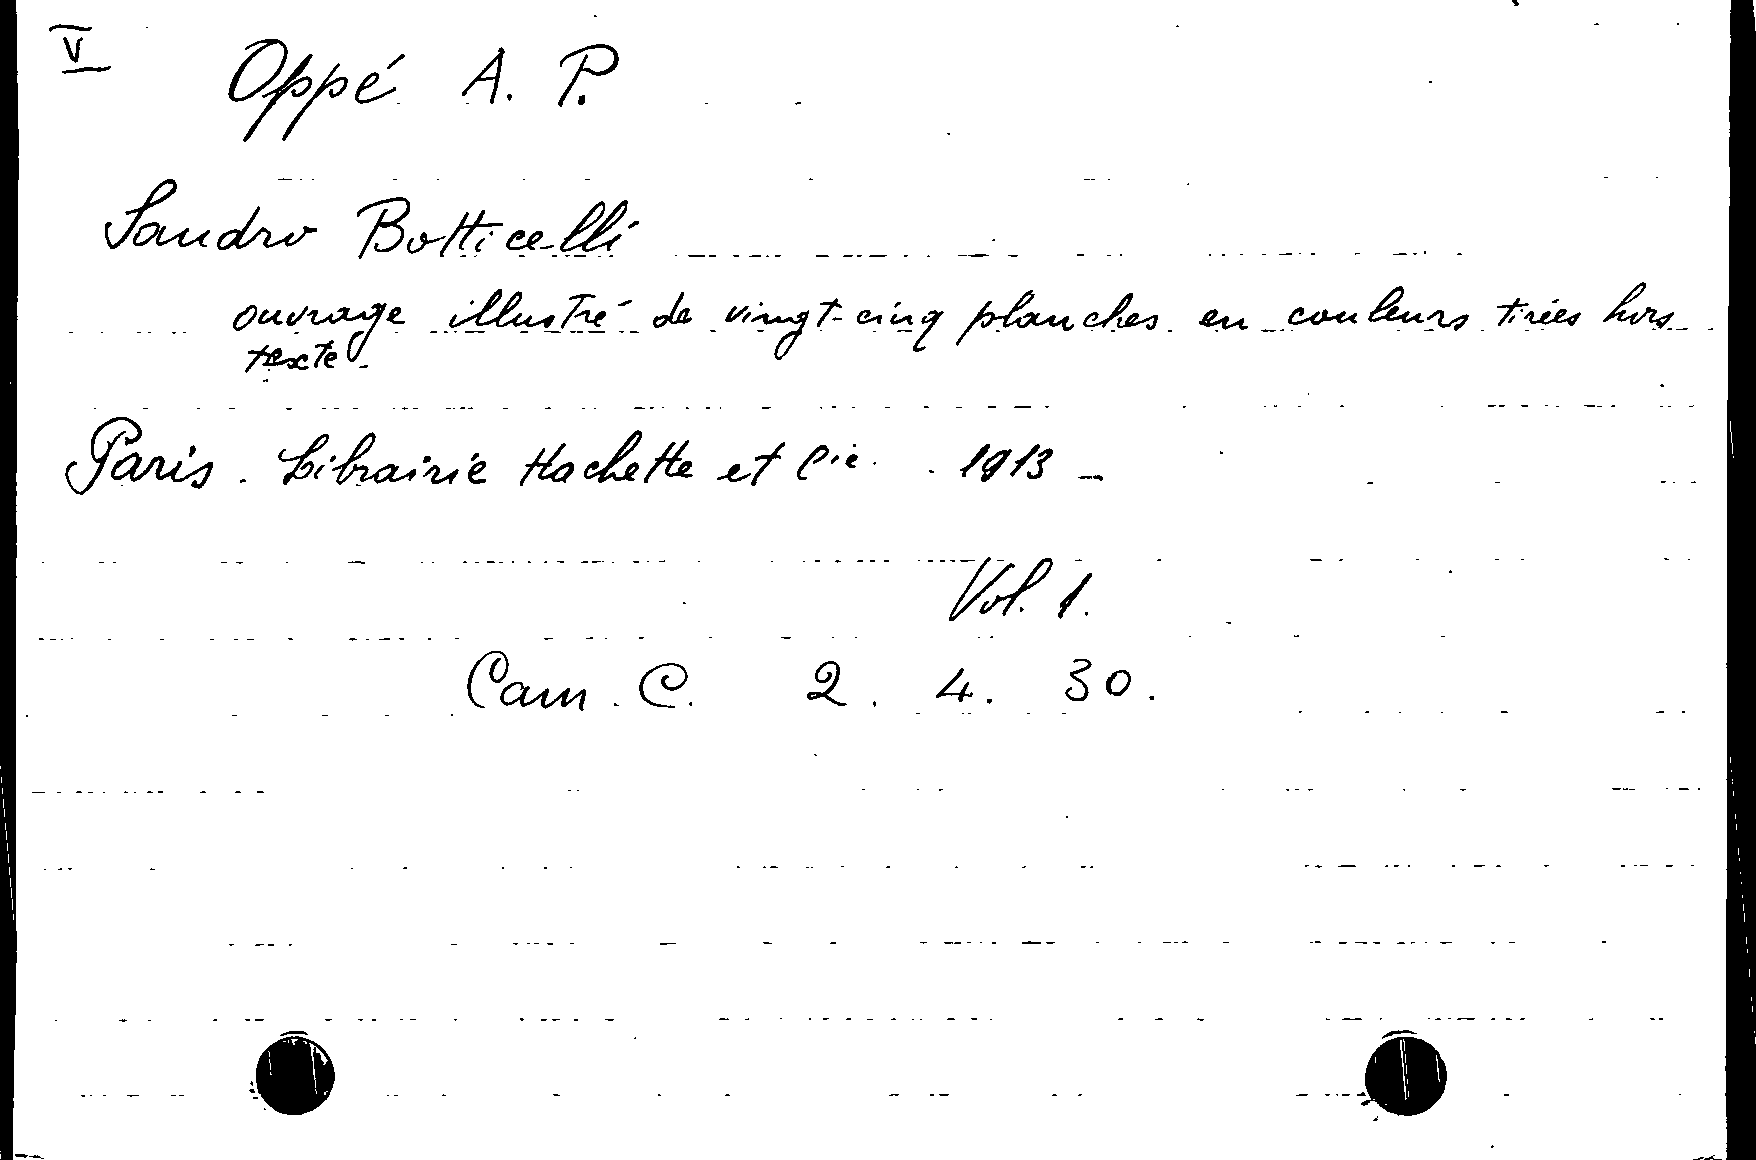 V
Oppé A. P.
Sandro Botticelli
ouvrage illustré de vingt-cinq planches en couleurs tirées hors
texte.
Paris. Librairie Hachette et Cie. 1913 -
Vol. 1.
Cam. C. 2. 4. 30.